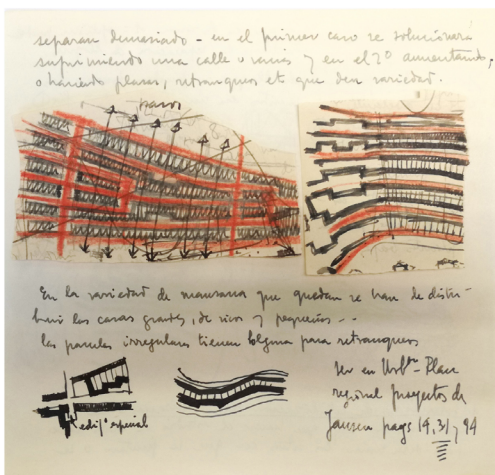 separan demasiado - en el primer caso se solucionará
suprimiendo una calle o varias y en el 2º aumentando,
o haciendo plazas, retranqueos et que den variedad.
pasos
En la variedad de manzanas que quedan se han de distri-
buir las casas grandes, de ricos y pequeños - -
las parcelas irregulares tienen para retranqueos
edifº especial
Ver en Urbtn - Plan
regional proyectos de
Jansen pags 19, 31, y 94